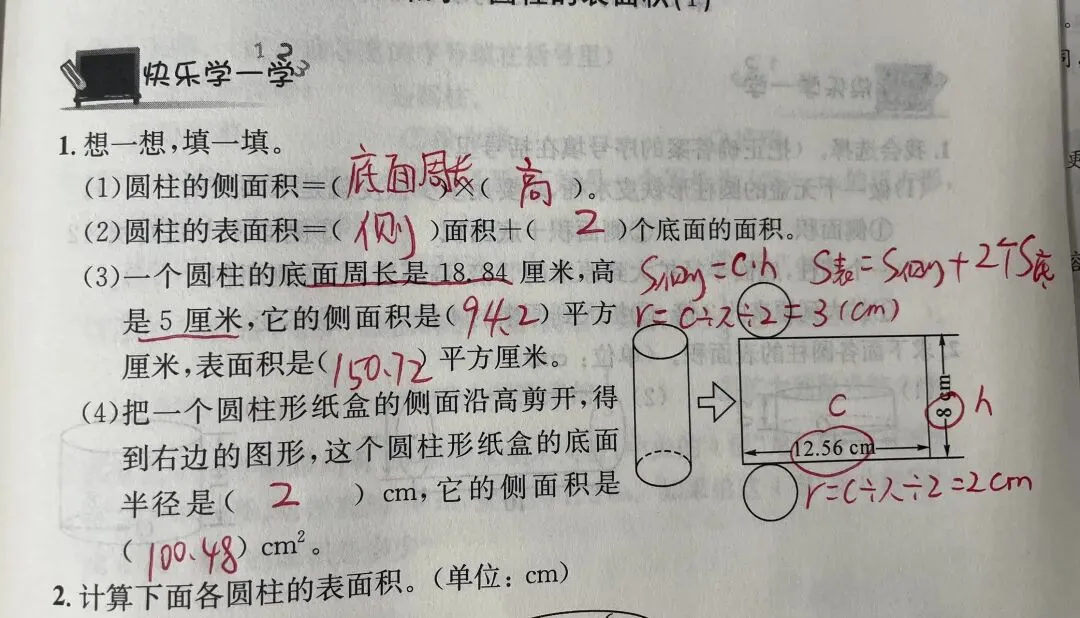 圆柱的表面积(1)
1 2 3
快乐学一学
1. 想一想,填一填。
(1)圆柱的侧面积=(底面周长)×(高)。
(2)圆柱的表面积=(侧)面积+(2)个底面的面积。
(3)一个圆柱的底面周长是18.84厘米,高
是5厘米,它的侧面积是(94.2)平方
厘米,表面积是(150.72)平方厘米。
S侧=C·h S表=S侧+2个S底
r=C÷π÷2=3(cm)
(4)把一个圆柱形纸盒的侧面沿高剪开,得
到右边的图形,这个圆柱形纸盒的底面
半径是(2)cm,它的侧面积是
(100.48)cm²。
C
8 cm h
12.56 cm
r=C÷π÷2=2cm
2. 计算下面各圆柱的表面积。(单位:cm)